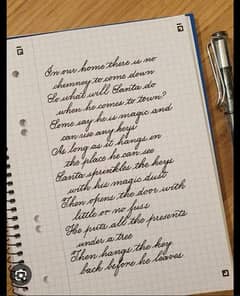 In our home there is no
chimney to come down
So what will Santa do
when he comes to town?
Some say he is magic and
can use any keys
As long as it hangs in
the place he can see
Santa sprinkles the keys
with his magic dust
Then opens the door with
little or no fuss
He puts all the presents
under a tree
Then hangs the key
back before he leaves